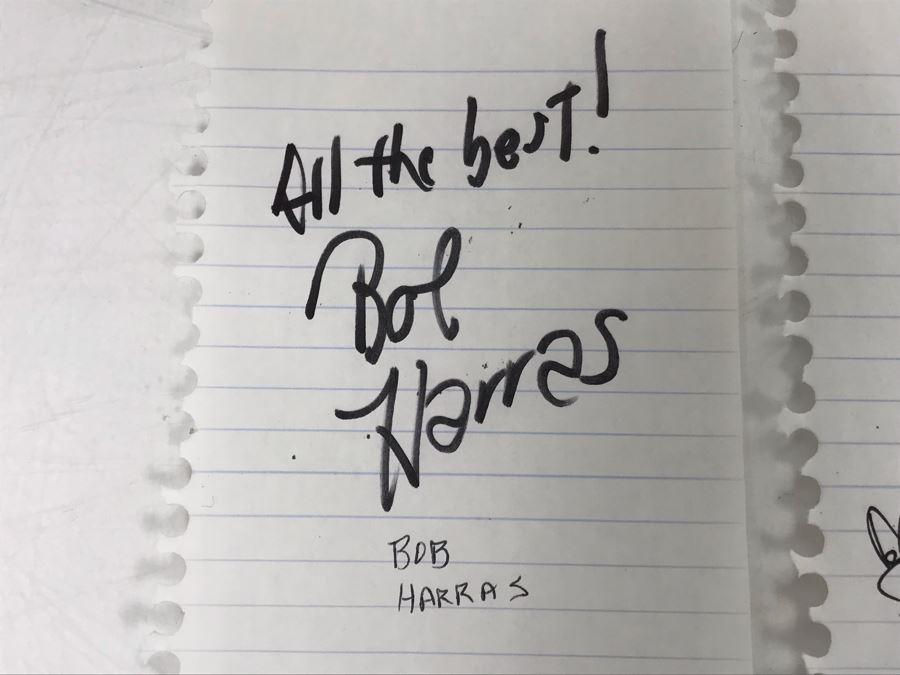 All the best!
Bob
Harras
BOB
HARRAS